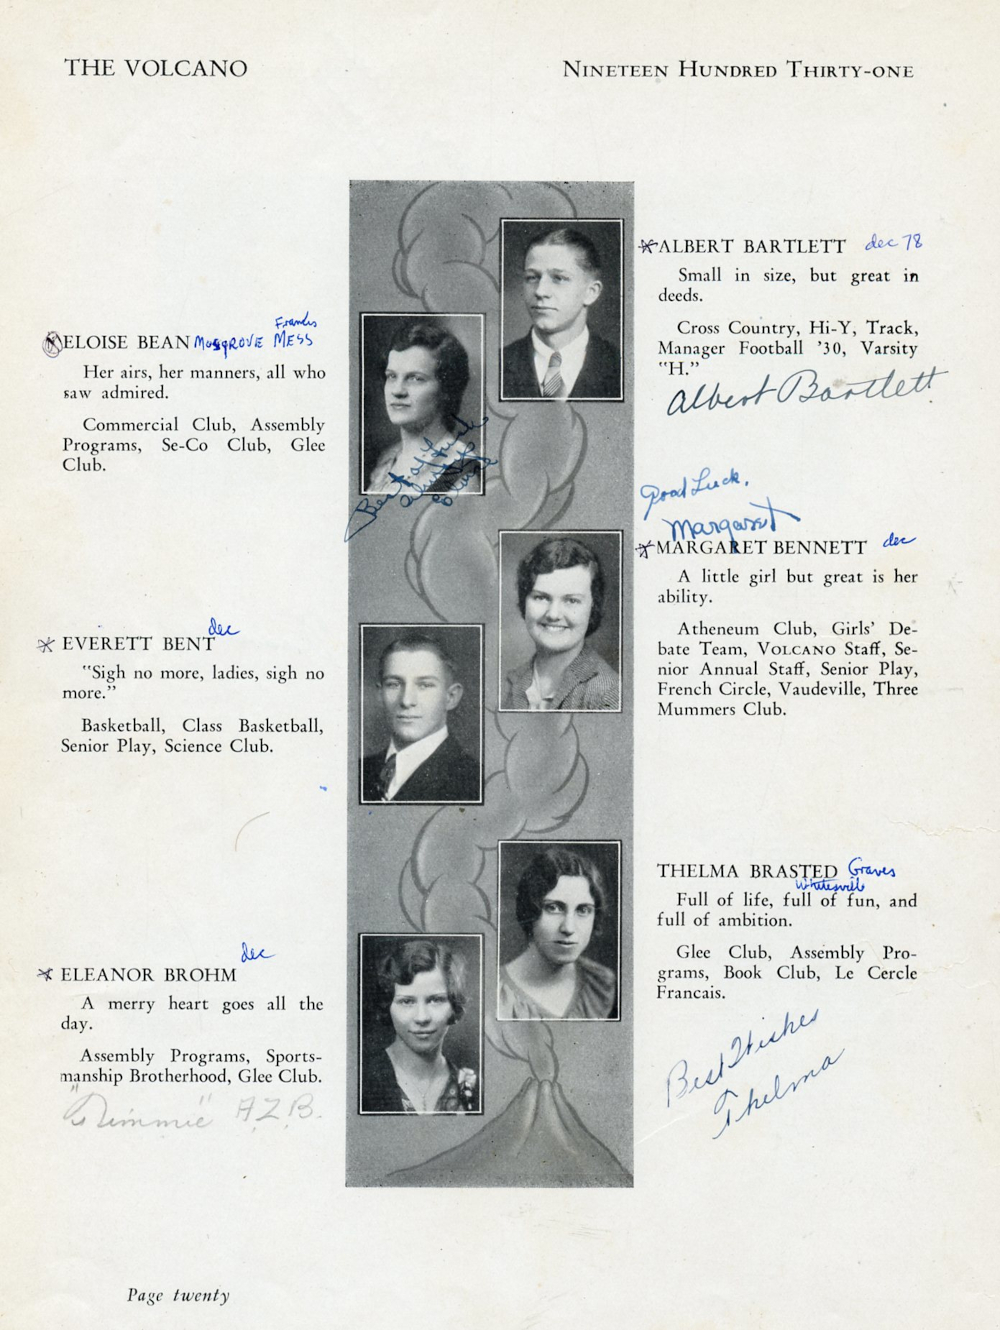 THE VOLCANO
NINETEEN HUNDRED THIRTY-ONE
ALBERT BARTLETT dec 78
Small in size, but great in
deeds.
Cross Country, Hi-Y, Track,
Manager Football '30, Varsity
"H."
Albert Bartlett
Francis
ELOISE BEAN MUSGROVE MESS
Her airs, her manners, all who
saw admired.
Commercial Club, Assembly
Programs, Se-Co Club, Glee
Club.
Best of Luck
Eloise
Good Luck,
Margaret
MARGARET BENNETT dec
A little girl but great is her
ability.
Atheneum Club, Girls' De-
bate Team, VOLCANO Staff, Se-
nior Annual Staff, Senior Play,
French Circle, Vaudeville, Three
Mummers Club.
dec
EVERETT BENT
"Sigh no more, ladies, sigh no
more."
Basketball, Class Basketball,
Senior Play, Science Club.
THELMA BRASTED Graves
Whitesville
Full of life, full of fun, and
full of ambition.
Glee Club, Assembly Pro-
grams, Book Club, Le Cercle
Francais.
Best Wishes
Thelma
dec
ELEANOR BROHM
A merry heart goes all the
day.
Assembly Programs, Sports-
manship Brotherhood, Glee Club.
A.Z.B.
Page twenty